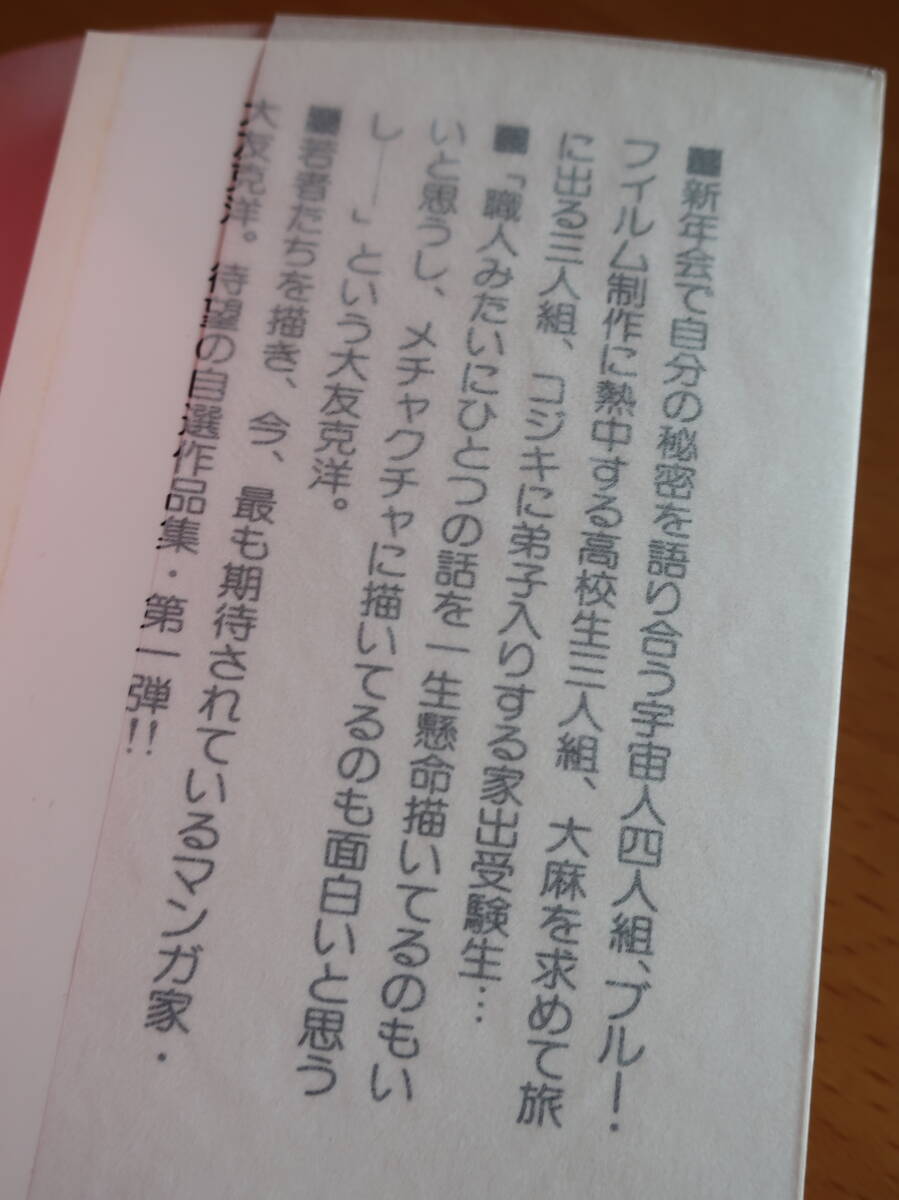 ■新年会で自分の秘密を語り合う宇宙人四人組、ブルー
フィルム制作に熱中する高校生三人組、大麻を求めて旅
に出る三人組、コジキに弟子入りする家出受験生…
■「職人みたいにひとつの話を一生懸命描いてるのもい
いと思うし、メチャクチャに描いてるのも面白いと思う
し――」という大友克洋。
■若者たちを描き、今、最も期待されているマンガ家・
大友克洋。待望の自選作品集・第一弾!!